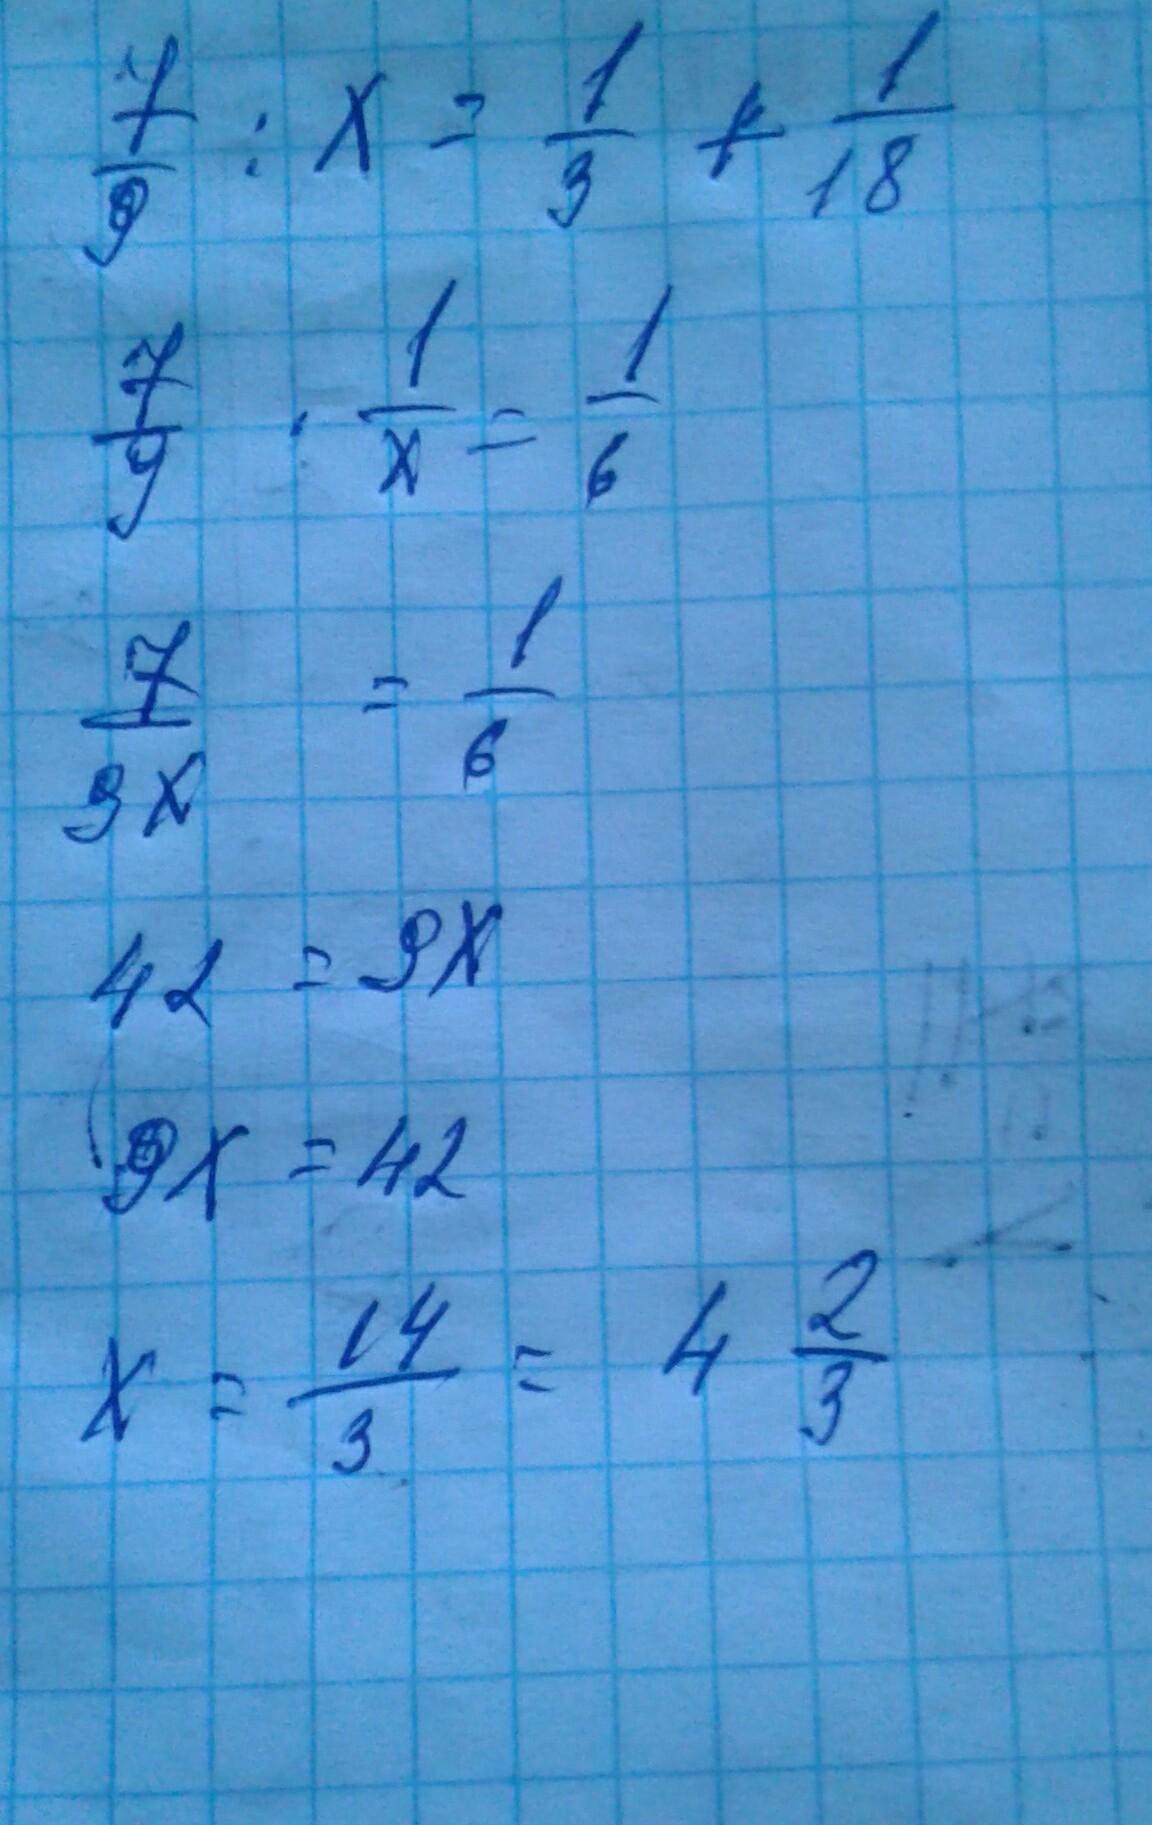 7/9 : x = 1/3 + 1/18
7/9 · 1/x = 1/6
7/9x = 1/6
42 = 9x
9x = 42
x = 14/3 = 4 2/3